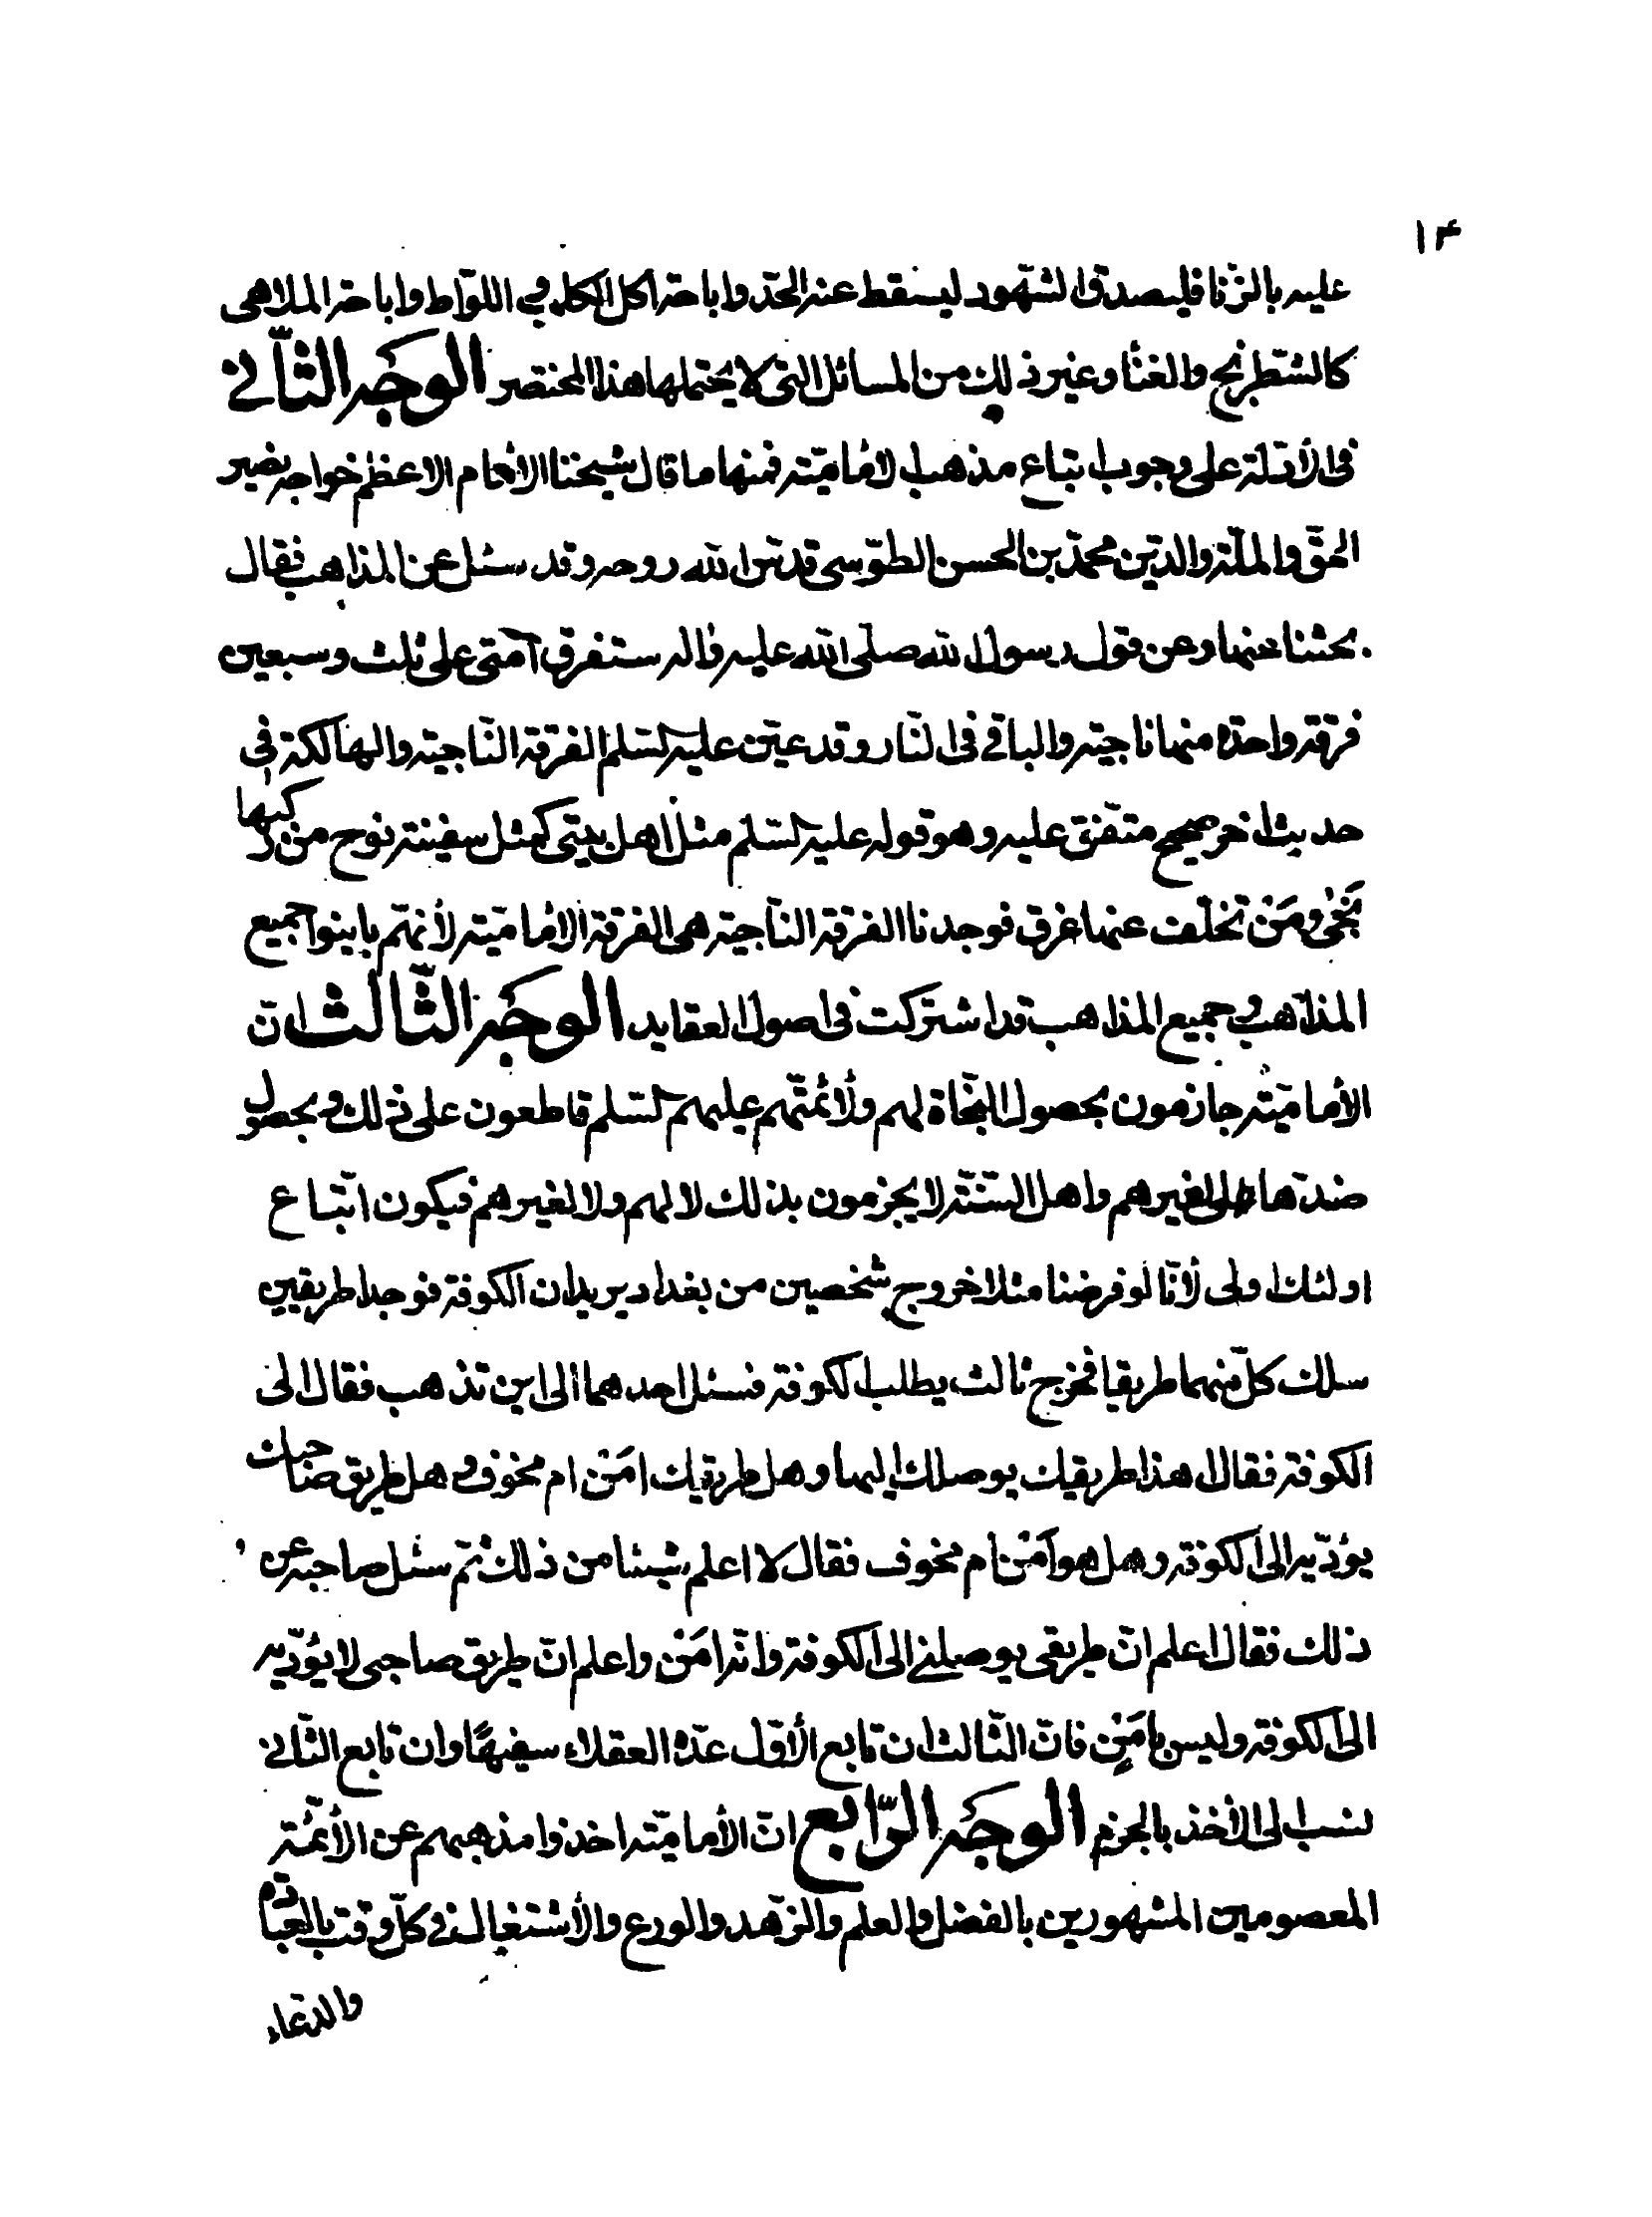 ۱۴
عليه بالزّنا فليصدق الشهود ليسقط عنه الحدّ واباحة اكل الكلب و اللواط واباحة الملاهى
كالشّطرنج والغنا وغير ذلك من المسائل التى لا يحتملها هذا المختصر الوجه الثّانى
فى الأدلّة على وجوب اتباع مذهب الأماميّة فمنها ما قال شيخنا الأمام الاعظم خواجه نصير
الحقّ والملّة والدّين محمّد بن الحسن الطّوسى قدّس الله روحه وقد سئل عن المذاهب فقال
بحثنا عنها وعن قول رسول الله صلّى الله عليه واله ستفرق امّتى على ثلث وسبعين
فرقة واحدة منها ناجية والباقى فى النّار وقد عيّن عليه السّلم الفرقة النّاجية والهالكة فى
حديث اخر صحيح متّفق عليه وهو قوله عليه السّلم مثل اهل بيتى كمثل سفينة نوح من ركبها
نجى ومن تخلّف عنها غرق فوجدنا الفرقة النّاجية هى الفرقة الأماميّة لأنهّم باينوا جميع
المذاهب وجميع المذاهب قد اشتركت فى اصول العقايد الوجه الثّالث انّ
الأماميّة جازمون بحصول النّجاة لهم ولأئمّتهم عليهم السّلم قاطعون على ذلك وبحصول
ضدّها لغيرهم واهل السّنّة لا يجزمون بذلك لا لهم ولا لغيرهم فيكون اتّباع
اولئك اولى لأنّا لو فرضنا مثلا خروج شخصين من بغداد يريدان الكوفة فوجدا طريقين
سلك كلّ منهما طريقا فخرج ثالث يطلب الكوفة فسئل احدهما الى اين تذهب فقال الى
الكوفة فقال هذا طريقك يوصلك اليها وهل طريقك امن ام مخوف و هل طريق صاحبك
يؤدّيه الى الكوفة وهل هو امن ام مخوف فقال لا اعلم شيئا من ذلك ثمّ سئل صاحبه عن
ذلك فقال اعلم انّ طريقى يوصلنى الى الكوفة وانّه امن واعلم انّ طريق صاحبى لا يؤدّيه
الى الكوفة وليس بامن فانّ الثّالث ان تابع الأوّل عدّه العقلاء سفيهًا وان تابع الثّانى
نسب الى الأخذ بالجزم الوجه الرّابع انّ الأماميّة اخذوا مذهبهم عن الأئمّة
المعصومين المشهورين بالفضل والعلم والزّهد والورع والأشتغال فى كلّ وقت بالعبادة
والدّعاء